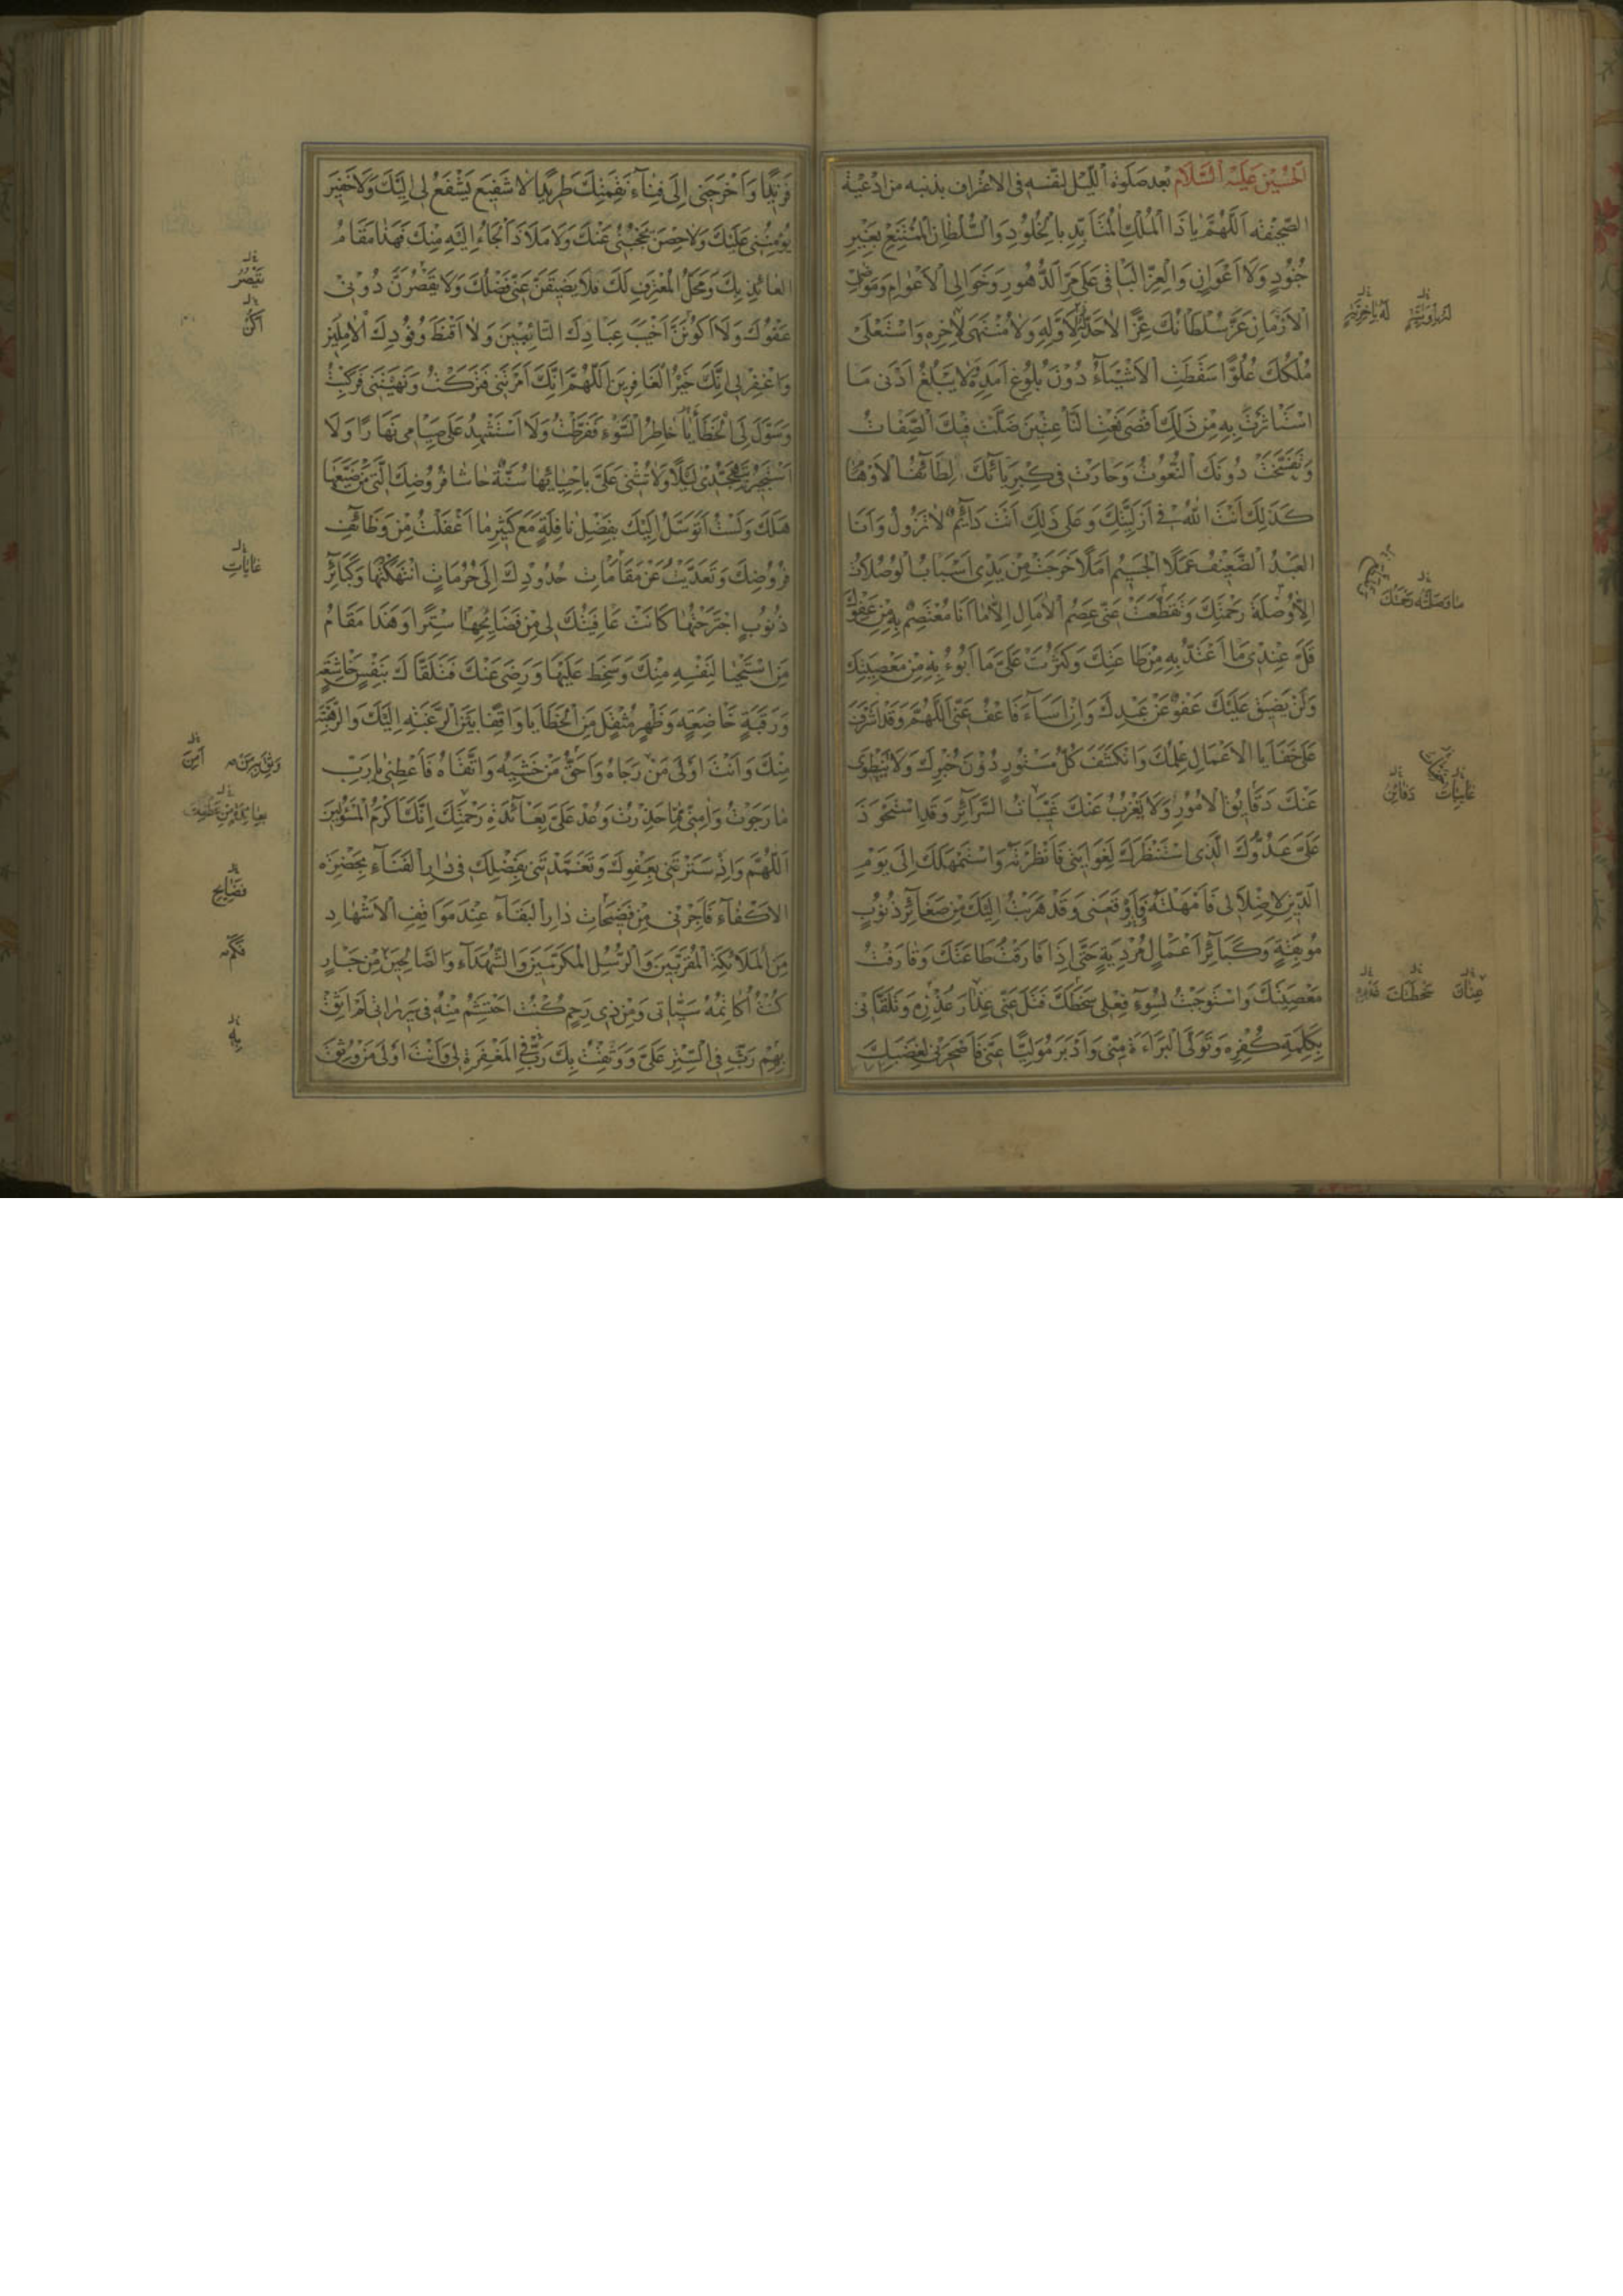 الحسين عليه السلام بعد صلوة الليل لنفسه في الاعتراف بذنبه من ادعية
الصحيفه اَللّهُمَّ يَا ذَا الْمُلْكِ الْمُتَأَبِّدِ بِالْخُلُودِ وَالسُّلْطَانِ الْمُمْتَنِعِ بِغَيْرِ
جُنُودٍ وَلَا اَعْوَانٍ وَالْعِزِّ الْبَاقِي عَلَى مَرِّ الدُّهُورِ وَخَوَالِي الْاَعْوَامِ وَمَوَاضِي
الْاَزْمَانِ عَزَّ سُلْطَانُكَ عِزًّا لَا حَدَّ لَهُ بِاَوَّلِيَّةٍ وَلَا مُنْتَهَى لَهُ بِاٰخِرِيَّةٍ وَاسْتَعْلَى
مُلْكُكَ عُلُوًّا سَقَطَتِ الْاَشْيَآءُ دُونَ بُلُوغِ اَمَدِهِ وَلَا يَبْلُغُ اَدْنَى مَا
اسْتَأْثَرْتَ بِهِ مِنْ ذَلِكَ اَقْصَى نَعْتِ النَّاعِتِينَ ضَلَّتْ فِيكَ الصِّفَاتُ
وَتَفَسَّخَتْ دُونَكَ النُّعُوتُ وَحَارَتْ فِي كِبْرِيَآئِكَ لَطَآئِفُ الْاَوْهَامِ
كَذَلِكَ اَنْتَ اللّٰهُ فِي اَزَلِيَّتِكَ وَعَلَى ذَلِكَ اَنْتَ دَآئِمٌ لَا تَزُولُ وَاَنَا
الْعَبْدُ الضَّعِيفُ عَمَلًا الْجَسِيمُ اَمَلًا خَرَجَتْ مِنْ يَدِي اَسْبَابُ الْوُصُلَاتِ
اِلَّا وُصْلَةَ رَحْمَتِكَ وَتَقَطَّعَتْ عَنِّي عِصَمُ الْاٰمَالِ اِلَّا مَا اَنَا مُعْتَصِمٌ بِهِ مِنْ عَفْوِكَ
قَلَّ عِنْدِي مَا اَعْتَدُّ بِهِ مِنْ طَاعَتِكَ وَكَثُرَتْ عَلَيَّ مَا اَبُوءُ بِهِ مِنْ مَعْصِيَتِكَ
وَلَنْ يَضِيقَ عَلَيْكَ عَفْوٌ عَنْ عَبْدِكَ وَاِنْ اَسَآءَ فَاعْفُ عَنِّي اَللّهُمَّ وَقَدْ اَشْرَفَ
عَلَى خَفَايَا الْاَعْمَالِ عِلْمُكَ وَانْكَشَفَ كُلُّ مَسْتُورٍ دُونَ خُبْرِكَ وَلَا تَنْطَوِي
عَنْكَ دَقَآيِقُ الْاُمُورِ وَلَا يَعْزُبُ عَنْكَ غَيِّبَاتُ السَّرَآئِرِ وَقَدِ اسْتَحْوَذَ
عَلَيَّ عَدُوُّكَ الَّذِي اسْتَنْظَرَكَ لِغَوَايَتِي فَاَنْظَرْتَهُ وَاسْتَمْهَلَكَ اِلَى يَوْمِ
الدِّينِ لِاِضْلَالِي فَاَمْهَلْتَهُ فَاَوْقَعَنِي وَقَدْ هَرَبْتُ اِلَيْكَ مِنْ صَغَآئِرِ ذُنُوبٍ
مُوبِقَةٍ وَكَبَآئِرِ اَعْمَالٍ مُرْدِيَةٍ حَتَّى اِذَا فَارَقْتُ طَاعَتَكَ وَقَارَفْتُ
مَعْصِيَتَكَ وَاسْتَوْجَبْتُ بِسُوءِ فِعْلِي سَخَطَكَ فَتَلَ عَنِّي عِذَارَ عُذْرِهِ وَتَلَقَّانِي
بِكَلِمَةِ كُفْرِهِ وَتَوَلَّى الْبَرَآءَةَ مِنِّي وَاَدْبَرَ مُوَلِّيًا عَنِّي فَاَصْحَرَنِي لِغَضَبِكَ
فَرِيدًا وَاَخْرَجَنِي اِلَى فِنَآءِ نَقِمَتِكَ طَرِيدًا لَا شَفِيعَ يَشْفَعُ لِي اِلَيْكَ وَلَا خَفِيرَ
يُؤْمِنُنِي عَلَيْكَ وَلَا حِصْنَ يَحْجُبُنِي عَنْكَ وَلَا مَلَاذَ اَلْجَاُ اِلَيْهِ مِنْكَ فَهَذَا مَقَامُ
الْعَآئِذِ بِكَ وَمَحَلُّ الْمُعْتَرِفِ لَكَ فَلَا يَضِيقَنَّ عَنِّي فَضْلُكَ وَلَا يَقْصُرَنَّ دُونِي
عَفْوُكَ وَلَا اَكُونَنَّ اَخْيَبَ عِبَادِكَ التَّائِبِينَ وَلَا اَقْنَطَ وُفُودِكَ الْاٰمِلِينَ
وَاغْفِرْ لِي اِنَّكَ خَيْرُ الْغَافِرِينَ اَللّهُمَّ اِنَّكَ اَمَرْتَنِي فَتَرَكْتُ وَنَهَيْتَنِي فَرَكِبْتُ
وَسَوَّلَ لِيَ الْخَطَأَ خَاطِرُ السُّوءِ فَفَرَّطْتُ وَلَا اَسْتَشْهِدُ عَلَى صِيَامِي نَهَارًا وَلَا
اَسْتَجِيرُ بِتَهَجُّدِي لَيْلًا وَلَا تُثْنِي عَلَيَّ بِاِحْيَائِهَا سُنَّةٌ حَاشَا فُرُوضِكَ الَّتِي مَنْ ضَيَّعَهَا
هَلَكَ وَلَسْتُ اَتَوَسَّلُ اِلَيْكَ بِفَضْلِ نَافِلَةٍ مَعَ كَثِيرِ مَا اَغْفَلْتُ مِنْ وَظَآئِفِ
فُرُوضِكَ وَتَعَدَّيْتُ عَنْ مَقَامَاتِ حُدُودِكَ اِلَى حُرُمَاتٍ انْتَهَكْتُهَا وَكَبَآئِرِ
ذُنُوبٍ اجْتَرَحْتُهَا كَانَتْ عَافِيَتُكَ لِي مِنْ فَضَايِحِهَا سِتْرًا وَهَذَا مَقَامُ
مَنِ اسْتَحْيَا لِنَفْسِهِ مِنْكَ وَسَخِطَ عَلَيْهَا وَرَضِيَ عَنْكَ فَتَلَقَّاكَ بِنَفْسٍ خَاشِعَةٍ
وَرَقَبَةٍ خَاضِعَةٍ وَظَهْرٍ مُثْقَلٍ مِنَ الْخَطَايَا وَاقِفًا بَيْنَ الرَّغْبَةِ اِلَيْكَ وَالرَّهْبَةِ
مِنْكَ وَاَنْتَ اَوْلَى مَنْ رَجَاهُ وَاَحَقُّ مَنْ خَشِيَهُ وَاتَّقَاهُ فَاَعْطِنِي يَا رَبِّ
مَا رَجَوْتُ وَاٰمِنِّي مِمَّا حَذِرْتُ وَعُدْ عَلَيَّ بِعَآئِدَةِ رَحْمَتِكَ اِنَّكَ اَكْرَمُ الْمَسْئُولِينَ
اَللّهُمَّ وَاِذْ سَتَرْتَنِي بِعَفْوِكَ وَتَغَمَّدْتَنِي بِفَضْلِكَ فِي دَارِ الْفَنَآءِ بِحَضْرَةِ
الْاَكْفَآءِ فَاَجِرْنِي مِنْ فَضِيحَاتِ دَارِ الْبَقَآءِ عِنْدَ مَوَاقِفِ الْاَشْهَادِ
مِنَ الْمَلَائِكَةِ الْمُقَرَّبِينَ وَالرُّسُلِ الْمُكَرَّمِينَ وَالشُّهَدَآءِ وَالصَّالِحِينَ مِنْ جَارٍ
كُنْتُ اُكَاتِمُهُ سَيِّئَاتِي وَمِنْ ذِي رَحِمٍ كُنْتُ احْتَشِمُ مِنْهُ فِي سَرِيرَاتِي لَمْ اَثِقْ
بِهِمْ رَبِّ فِي السِّتْرِ عَلَيَّ وَوَثِقْتُ بِكَ رَبِّ فِي الْمَغْفِرَةِ لِي وَاَنْتَ اَوْلَى مَنْ وُثِقَ
لَهُ بِاٰخِرِيَّةٍ
غَآئِبَاتُ
دَقَائِقُ
عِنَانَ
سَخْطَتَكَ
يَقْصُرُ
اَكُنْ
غَايَاتِ
فَضَايِحِ
بِهِ